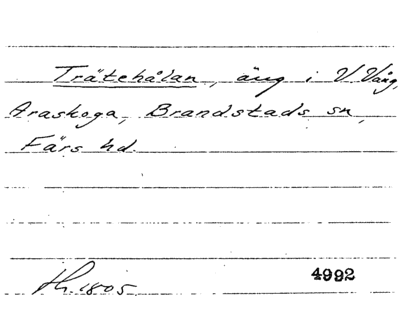 Trätehålan, äng i V. Vång,
Araskoga, Brandstads sn,
Färs hd.
th. 1805. 4992